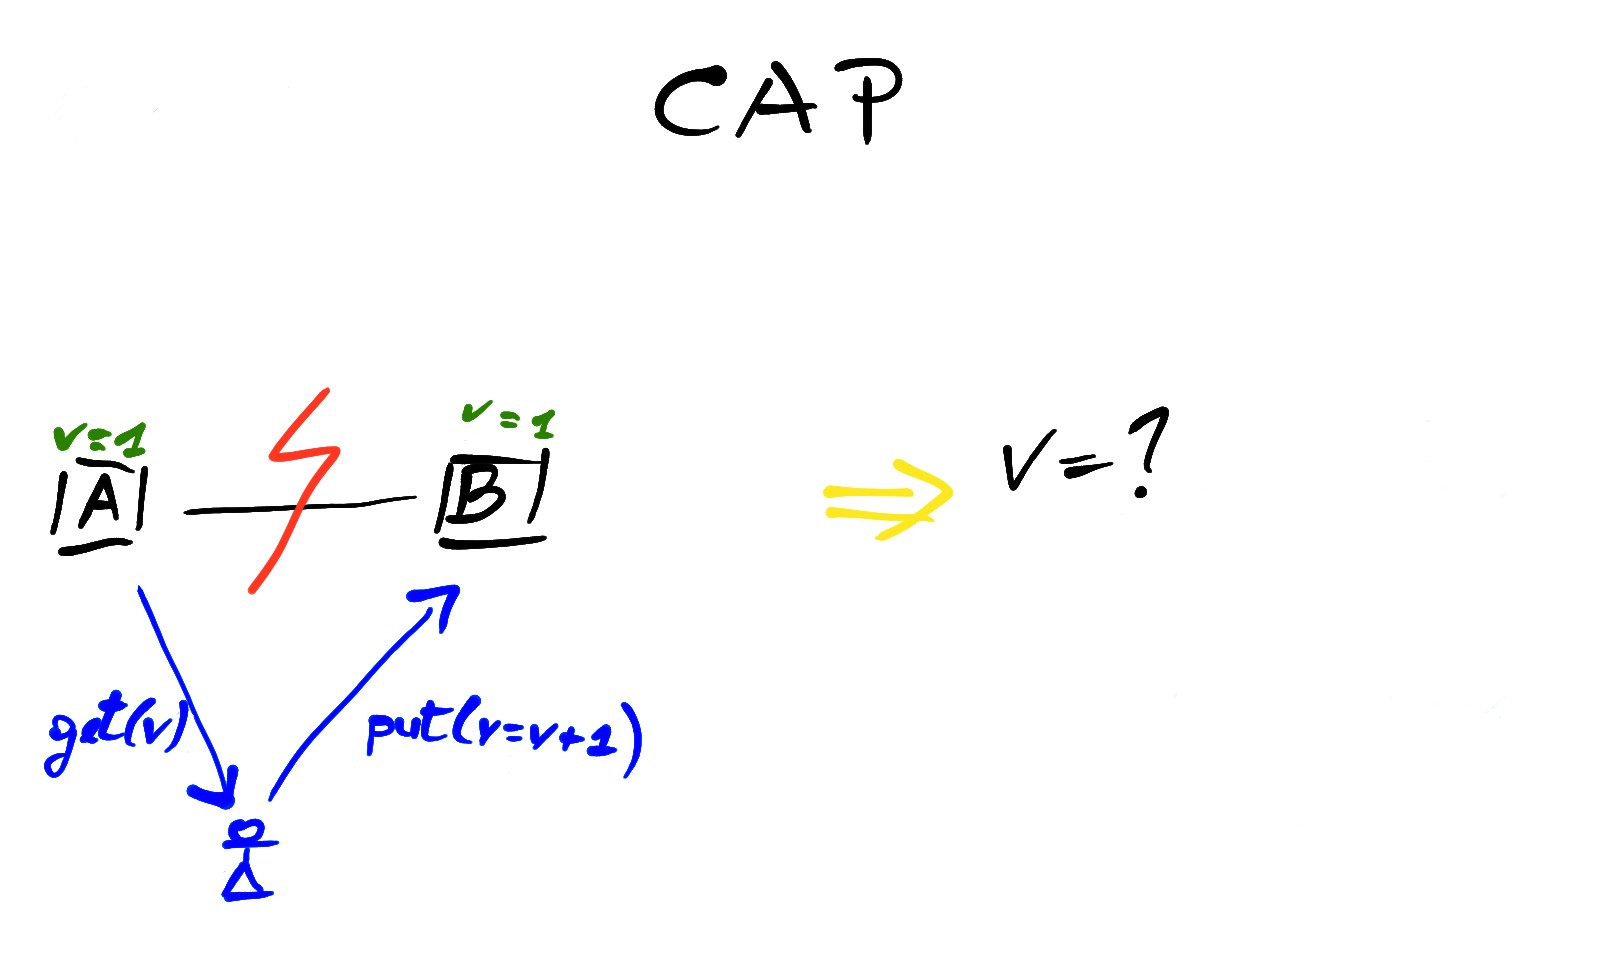 CAP
v=1
v=1
A
B
v=?
get(v)
put(v=v+1)